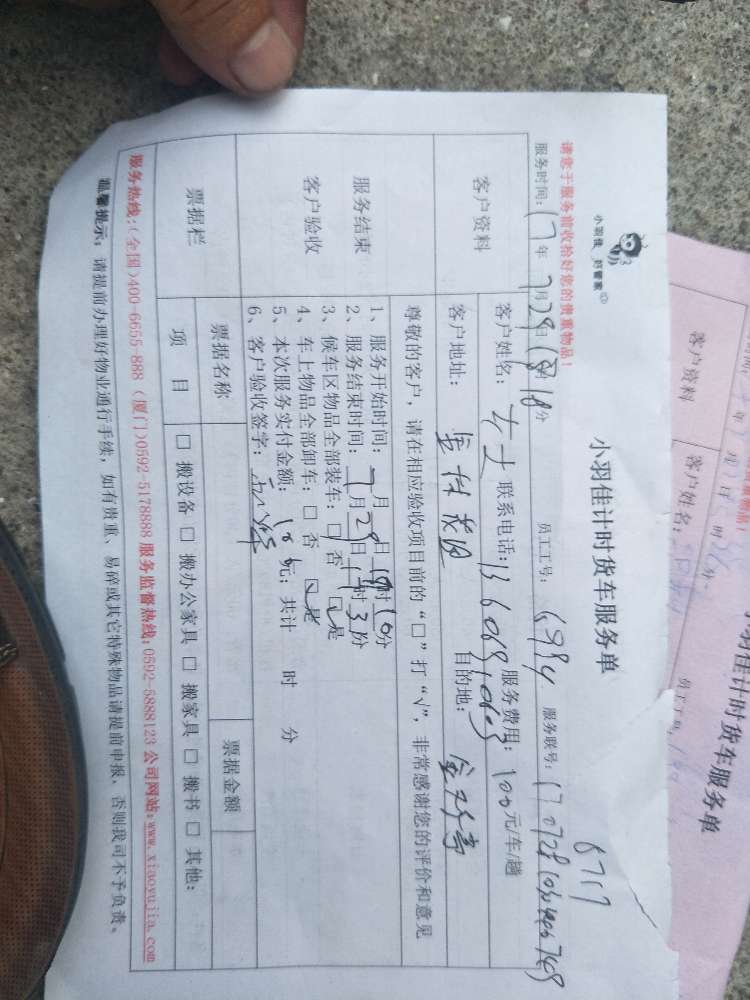 小羽佳 好管家
小羽佳计时货车服务单
6717
请您于服务前收拾好您的贵重物品!
服务时间: 17年7月29日 18分 员工工号: 6984 服务联号:
客户资料
客户姓名: 女士 联系电话: 服务费用: 100元/车/趟
客户地址: 目的地:
尊敬的客户，请在相应验收项目前的“□”打“√”，非常感谢您的评价和意见
服务结束
客户验收
1、服务开始时间: 月 日 时 10分
2、服务结束时间: 7月29日 时 3分
3、候车区物品全部装车: □ 否 □ 是
4、车上物品全部卸车: □ 否 □ 是
5、本次服务实付金额: 100元; 共计 时 分
6、客户验收签字:
票据栏
票据名称 票据金额
项 目 □ 搬设备 □ 搬办公家具 □ 搬家具 □ 搬书 □ 其他:
服务热线:(全国)400-6655-888 (厦门)0592-5178888 服务监督热线:0592-5888123 公司网站:www.xiaoyujia.com
温馨提示: 请提前办理好物业通行手续，如有贵重、易碎或其它特殊物品请提前申报，否则我司不予负责。
小羽佳计时货车服务单
客户资料
客户姓名: